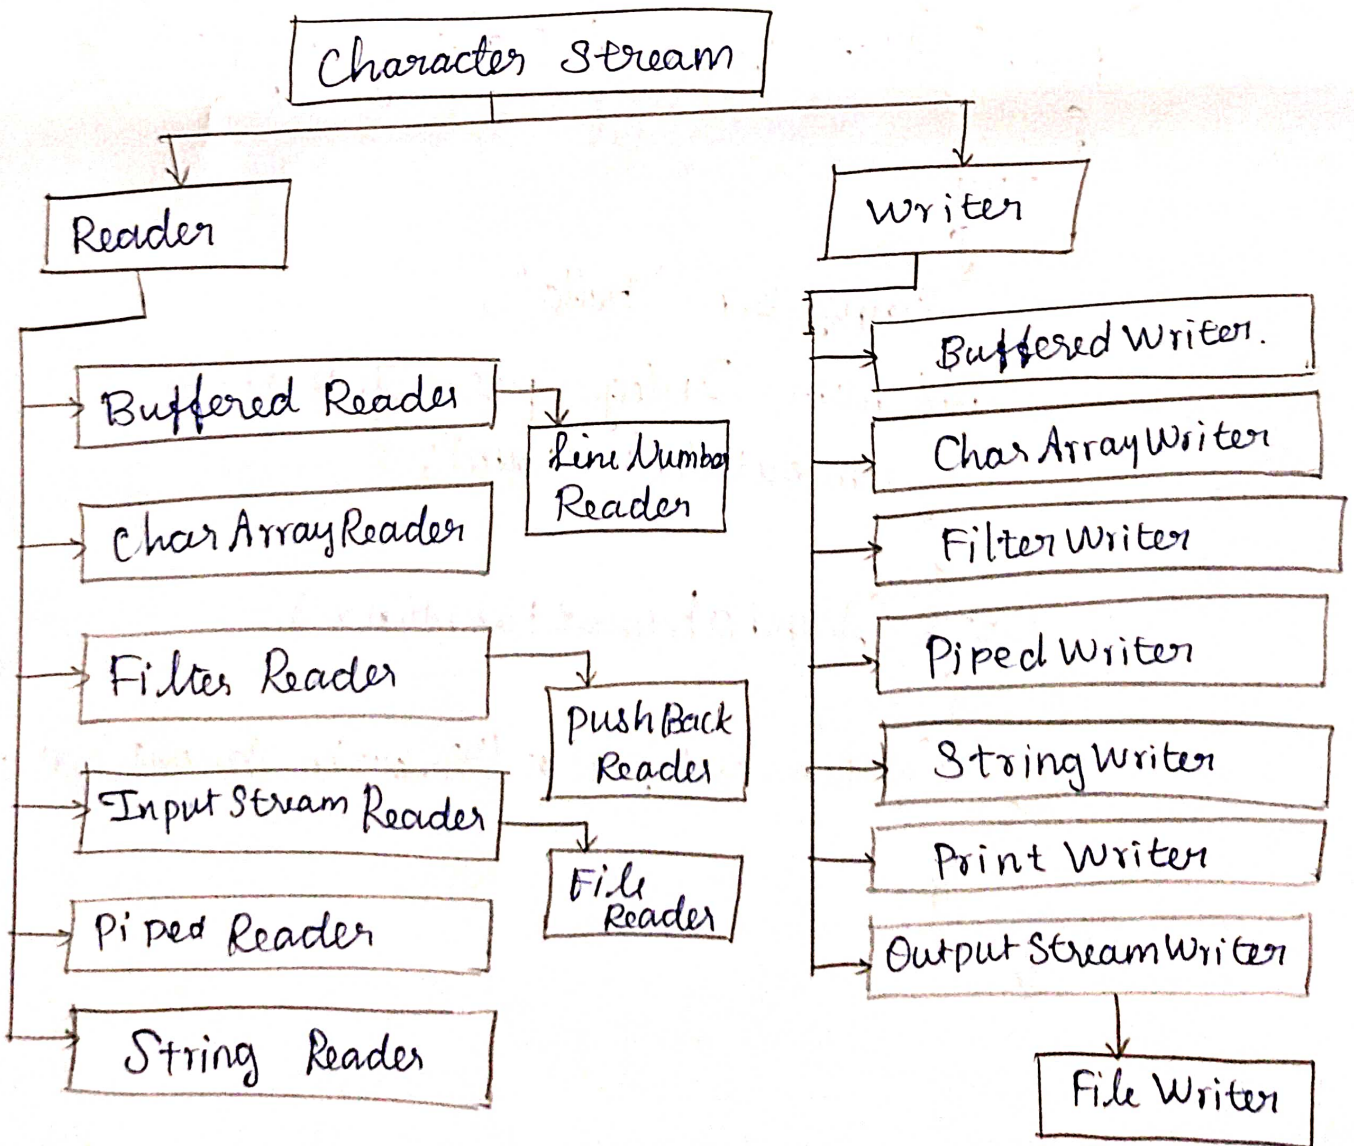 Character Stream
Reader
Writer
Buffered Reader
Line Number
Reader
CharArrayReader
Filter Reader
PushBack
Reader
InputStream Reader
File
Reader
Piped Reader
String Reader
Buffered Writer.
CharArrayWriter
Filter Writer
Piped Writer
String Writer
Print Writer
OutputStreamWriter
File Writer